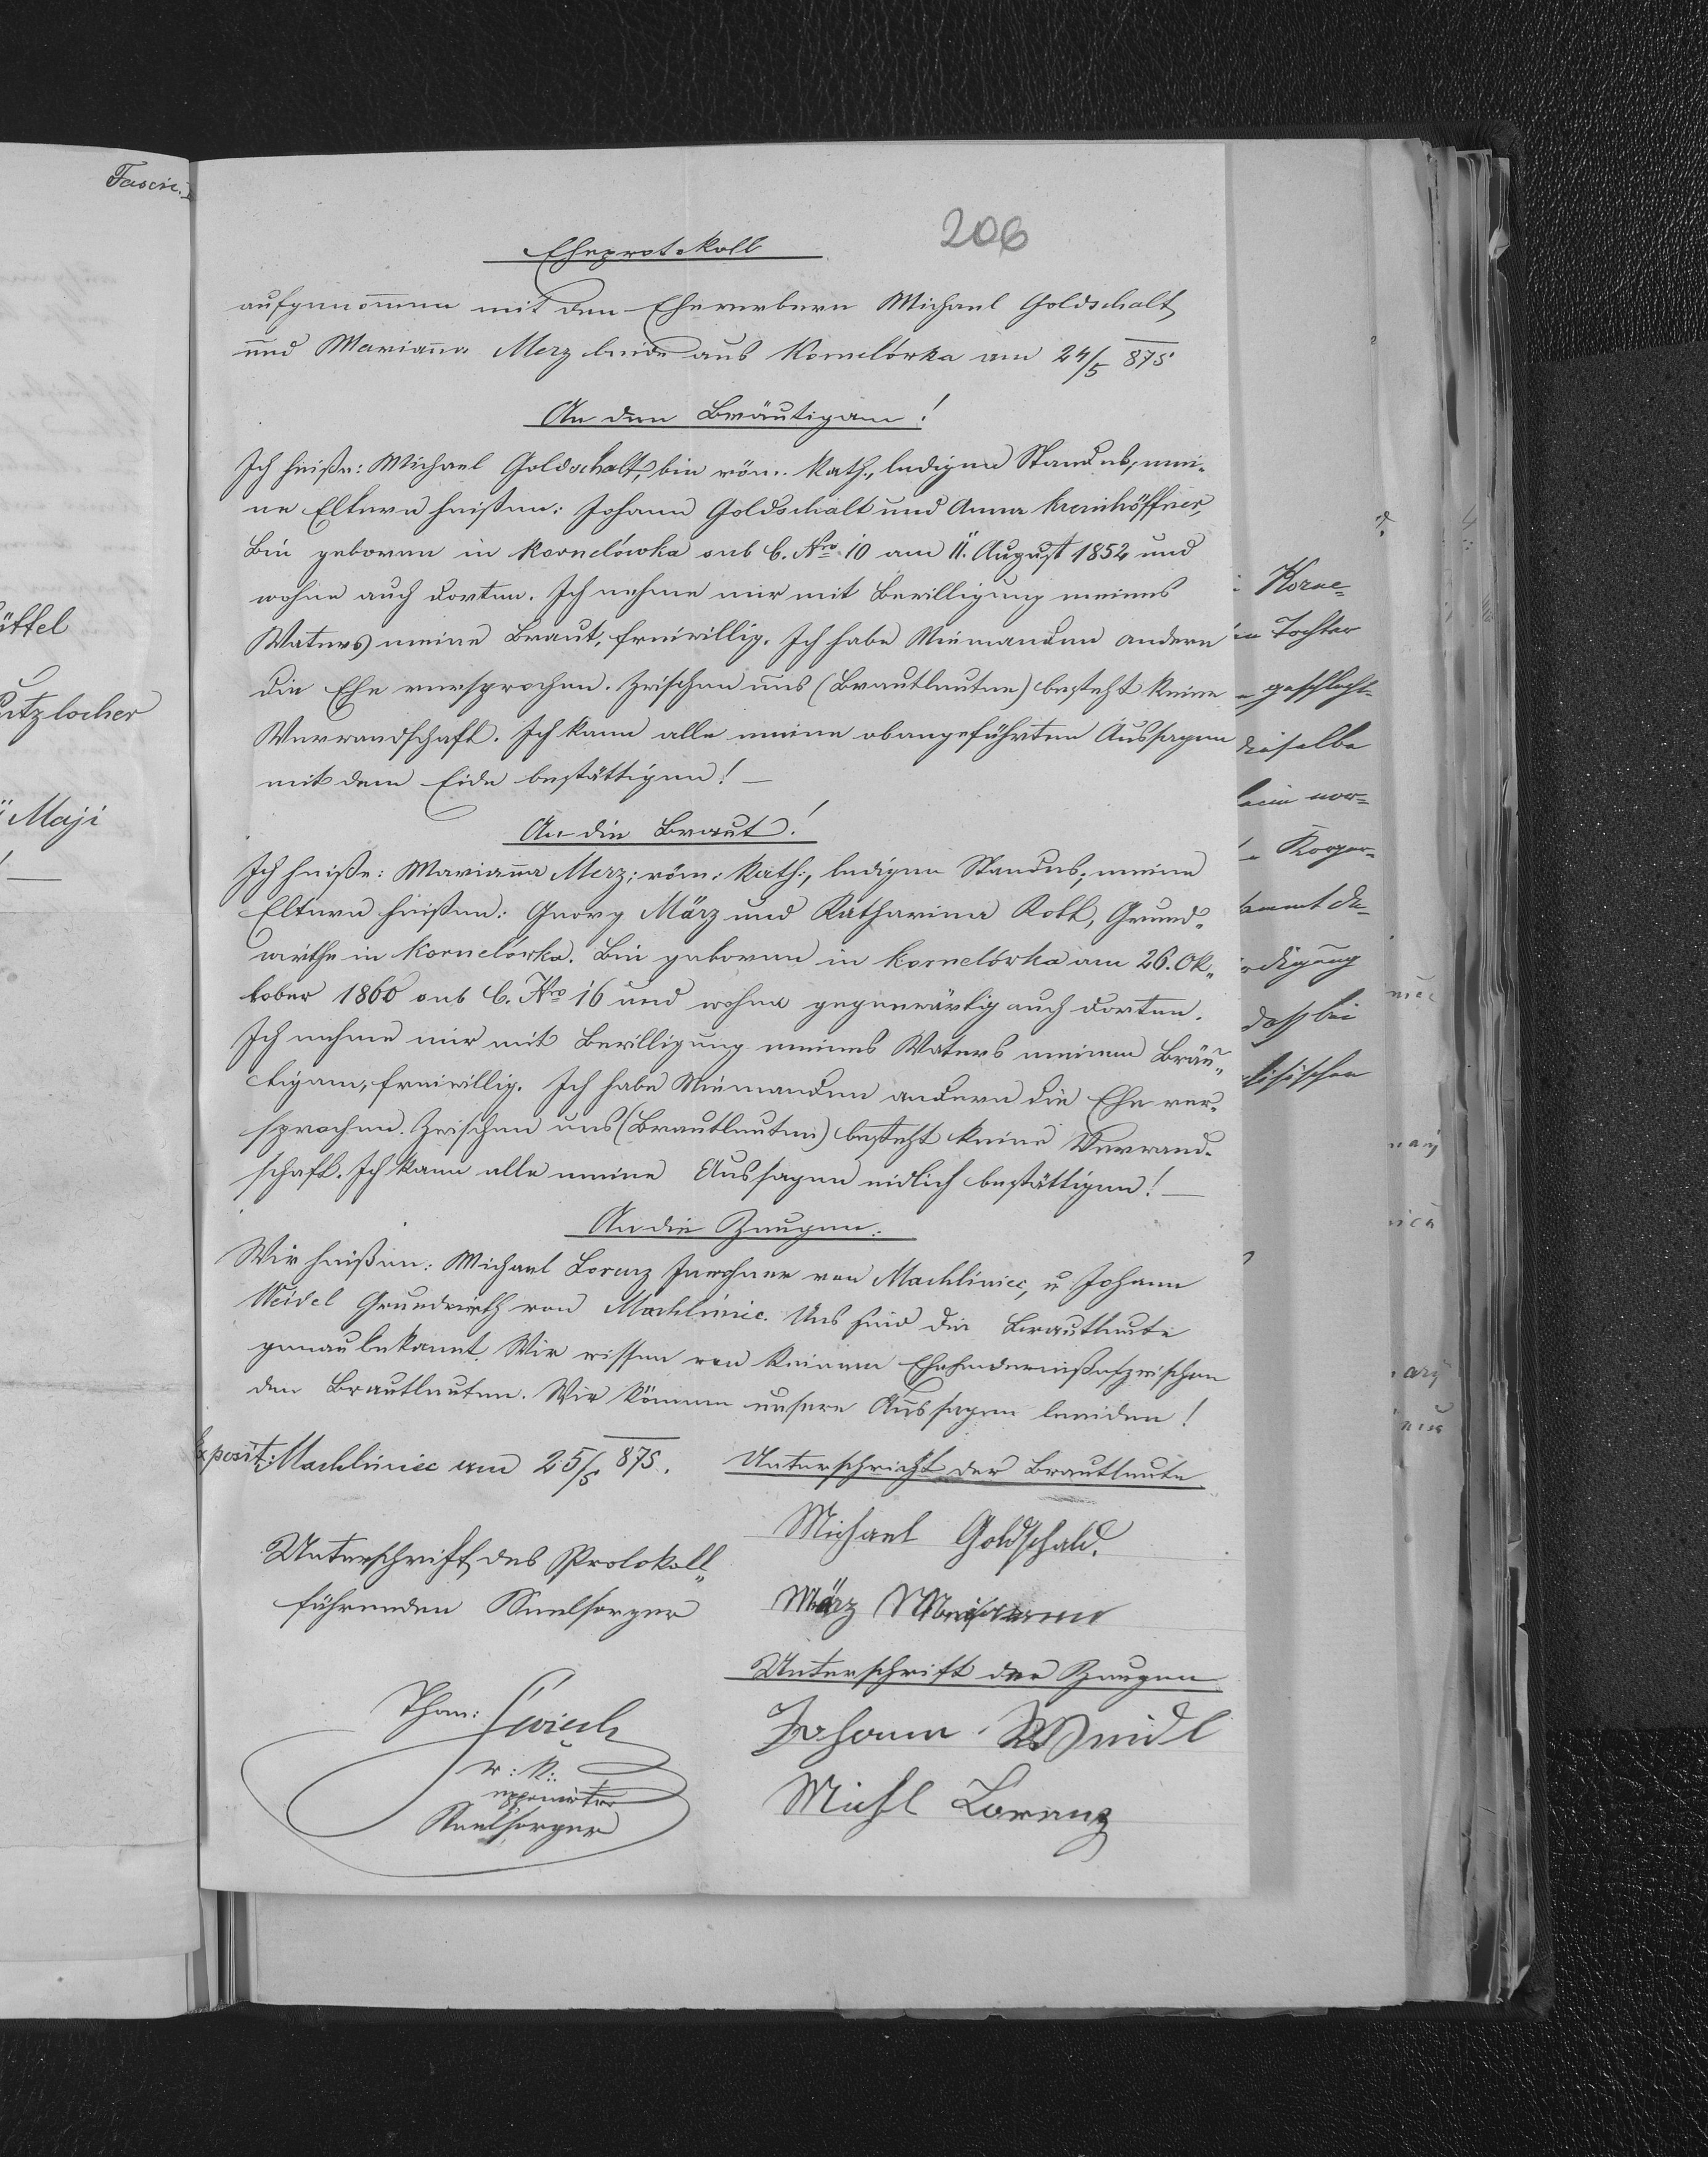 Fascic.
206
Eheprotokoll
aufgenom̄en mit den Ehewerbern Michael Goldschalt
und Marian̄a Merz beide aus Kornelówka am 24/5 875
An den Bräutigam!
Ich heiße: Michael Goldschalt, bin röm. Kath., ledigen Standes, mei-
ne Eltern heißen: Johann Goldschalt und Anna Kreinhöffner,
Bin geboren in Kornelówka sub C. Nro 10 am 11. August 1852 und
wohne auch dorten. Ich nehme mir mit Bewilligung meines
Vaters meine Braut, freiwillig. Ich habe Niemanden andern
die Ehe versprochen. Zwischen uns (Brautleuten) besteht keine
Verwandschaft. Ich kann alle meine obangeführten Aussagen
mit dem Eide bestättigen! —
An die Braut!
Ich heiße: Marian̄a Merz; röm: Kath:, ledigen Standes; meine
Eltern heißen: Georg März und Katharina Roth, Grund-
wirthe in Kornelówka. Bin geboren in Kornelówka am 26. Ok-
tober 1860 sub C. Nro 16 und wohne gegenwärtig auch dorten.
Ich nehme mir mit Bewilligung meines Vaters meinen Bräu-
tigam, freiwillig. Ich habe Niemanden andern die Ehe ver-
sprochen. Zwischen uns (Brautleuten) besteht keine Verwand-
schaft. Ich kann alle meine Aussagen eidlich bestättigen! —
An die Zeugen:
Wir heißen: Michael Lorenz Inwohner von Machliniec, u Johann
Weidel Grundwirth von Machlinic. Uns sind die Brautleute
genau bekannt. Wir wissen von keinem Ehehinderniße zwischen
den Brautleuten. Wir können unsere Aussagen beeiden!
Exposit: Machliniec am 25/5 875.
Unterschricht der Brautleute
Michael Goldschald.
Unterschrift des Protokoll-
führenden Seelsorger
März Mariann
Unterschrift der Zeugen
Thom:
r: k:
exponirter
Seelsorger
Johann Weidl
Michl Lorenz
utzlocher
Maji
Korne-
Tochter
geschlecht-
dieselbe
Korper-
daß bei